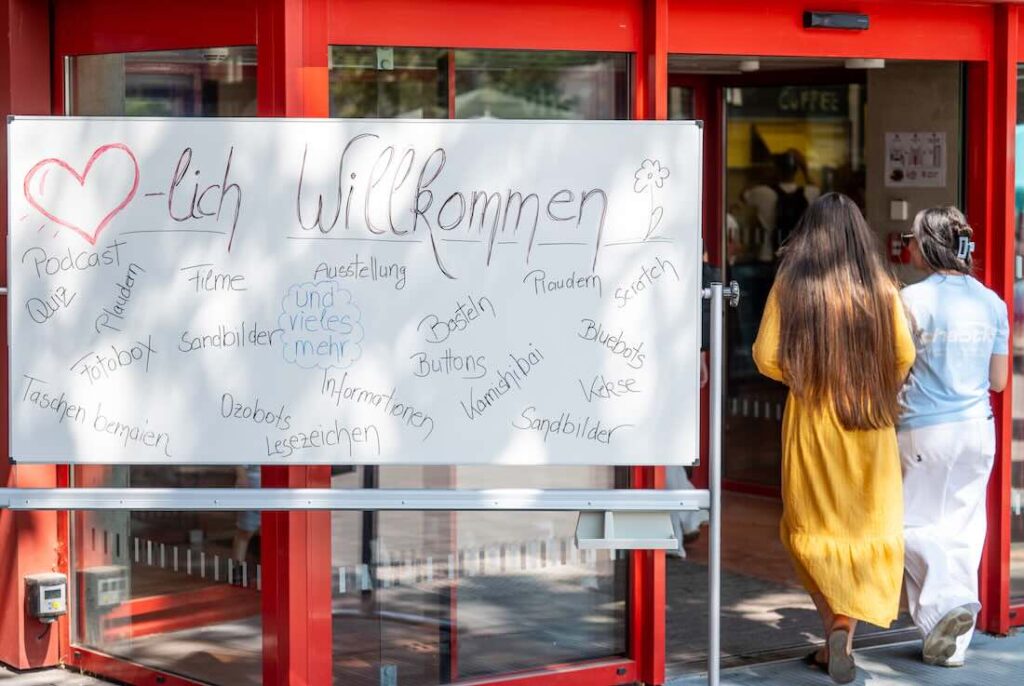 -lich Willkommen
Podcast
Quiz
Plaudern
Filme
Ausstellung
Plaudern
Scratch
und
vieles
mehr
Sandbilder
Basteln
Bluebots
Fotobox
Buttons
Kamishibai
Kekse
Taschen bemalen
Ozobots
Informationen
Lesezeichen
Sandbilder
COFFEE